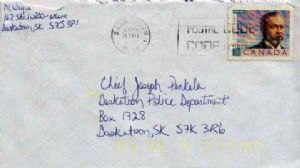 Saskatoon, SK S7J 3P1
POSTAL CODE
CODE
CANADA
Chief Joseph Penkala
Saskatoon Police Department
Box 1728
Saskatoon, SK S7K 3R6